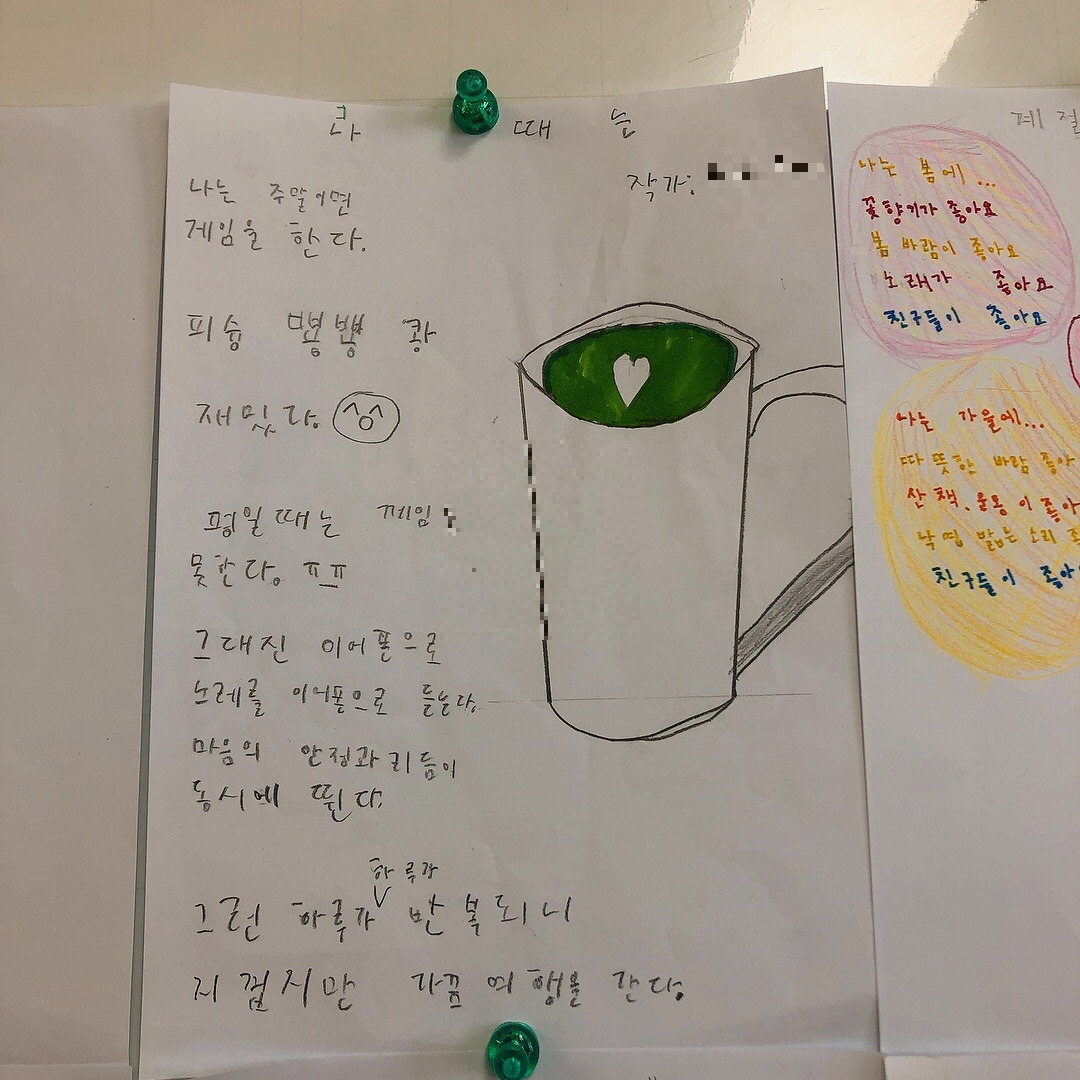 라때는
작가:
나는 주말이면
게임을 한다.
피슝 뿅뿅 쾅
재밌다.
평일때는 께임
못한다. ㅠㅠ
그대신 이어폰으로
노레를 이어폰으로 듣는다.
마음의 안정과 리듬이
동시에 뛴다.
하루가
그런 하루가 반복되니
지겹지만 가끔 여행을 간다.
계절
나는 봄에...
꽃향기가 좋아요
봄 바람이 좋아요
노래가 좋아요
친구들이 좋아요
나는 가을에...
따뜻한 바람 좋아
산책, 운동이 좋아
낙엽 밟는 소리
친구들이 좋아